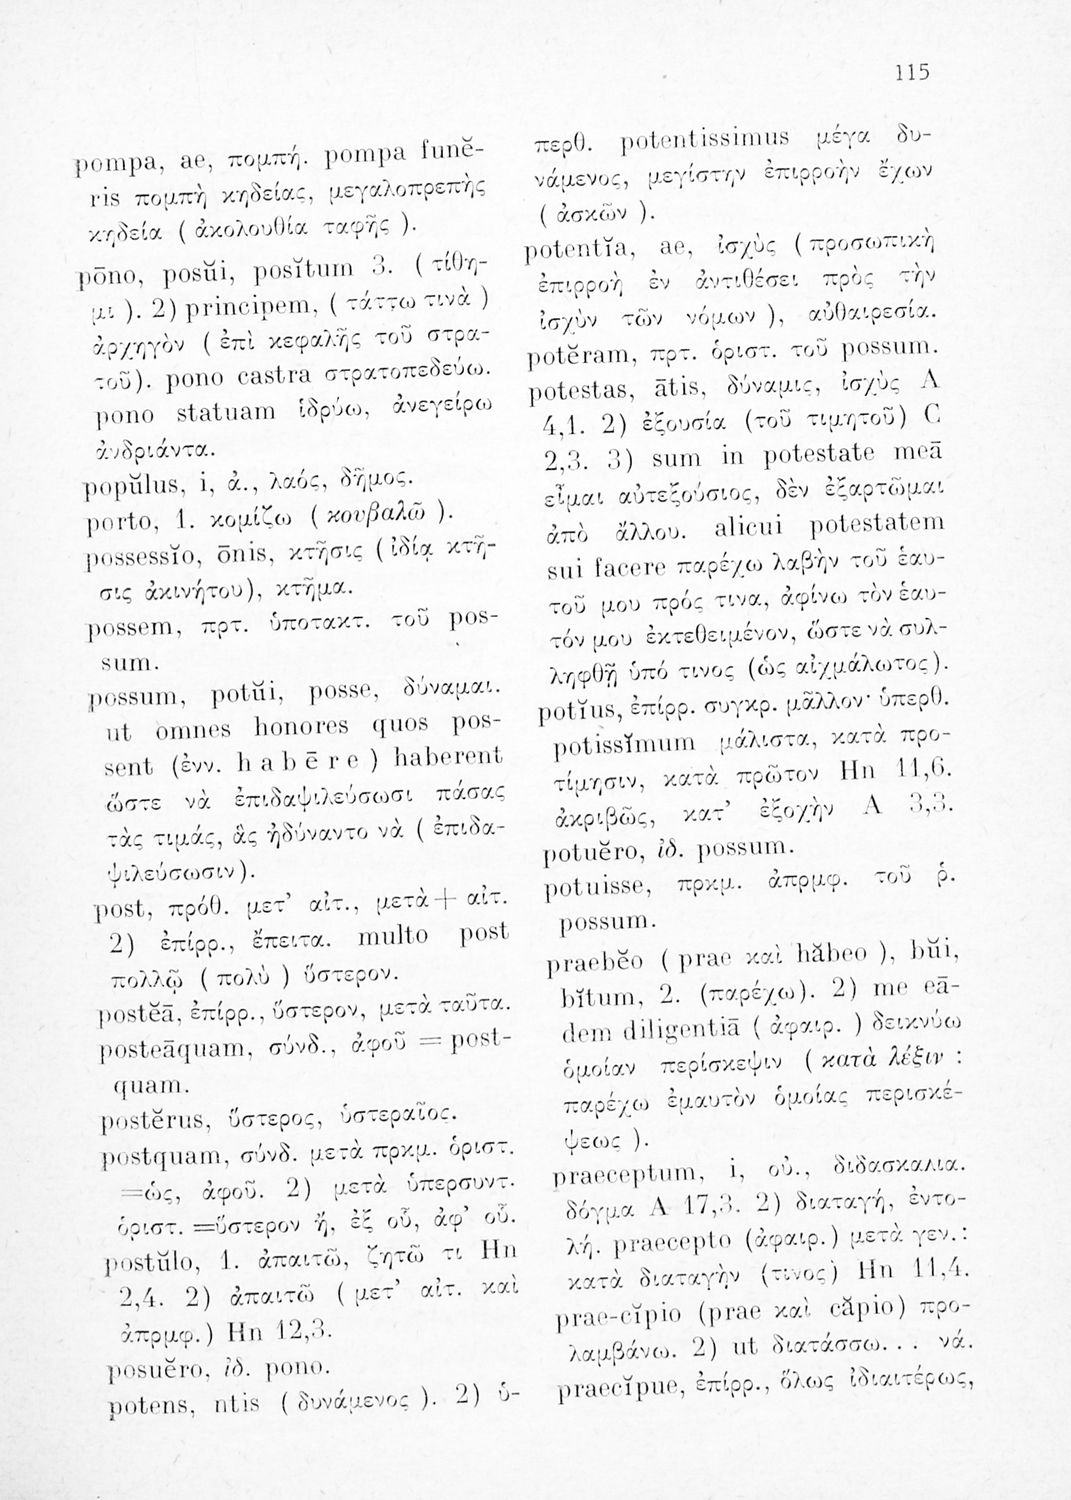 115
pompa, ae, πομπή. pompa funĕ-
ris πομπὴ κηδείας, μεγαλοπρεπὴς
κηδεία ( ἀκολουθία ταφῆς ).
pōno, posŭi, posĭtum 3. ( τίθη-
μι ). 2) principem, ( τάττω τινὰ )
ἀρχηγὸν ( ἐπὶ κεφαλῆς τοῦ στρα-
τοῦ). pono castra στρατοπεδεύω.
pono statuam ἱδρύω, ἀνεγείρω
ἀνδριάντα.
popŭlus, i, ἀ., λαός, δῆμος.
porto, 1. κομίζω ( κουβαλῶ ).
possessĭo, ōnis, κτῆσις ( ἰδίᾳ κτῆ-
σις ἀκινήτου), κτῆμα.
possem, πρτ. ὑποτακτ. τοῦ pos-
sum.
possum, potŭi, posse, δύναμαι.
ut omnes honores quos pos-
sent (ἐνν. habēre) haberent
ὥστε νὰ ἐπιδαψιλεύσωσι πάσας
τὰς τιμάς, ἃς ἠδύναντο νὰ ( ἐπιδα-
ψιλεύσωσιν).
post, πρόθ. μετ' αἰτ., μετὰ + αἰτ.
2) ἐπίρρ., ἔπειτα. multo post
πολλῷ ( πολὺ ) ὕστερον.
postĕā, ἐπίρρ., ὕστερον, μετὰ ταῦτα.
posteāquam, σύνδ., ἀφοῦ = post-
quam.
postĕrus, ὕστερος, ὑστεραῖος.
postquam, σύνδ. μετὰ πρκμ. ὁριστ.
=ὡς, ἀφοῦ. 2) μετὰ ὑπερσυντ.
ὁριστ. =ὕστερον ἤ, ἐξ οὗ, ἀφ' οὗ.
postŭlo, 1. ἀπαιτῶ, ζητῶ τι Hn
2,4. 2) ἀπαιτῶ ( μετ' αἰτ. καὶ
ἀπρμφ.) Hn 12,3.
posuĕro, ἰδ. pono.
potens, ntis ( δυνάμενος ). 2) ὑ-
περθ. potentissimus μέγα δυ-
νάμενος, μεγίστην ἐπιρροὴν ἔχων
( ἀσκῶν ).
potentĭa, ae, ἰσχὺς ( προσωπικὴ
ἐπιρροὴ ἐν ἀντιθέσει πρὸς τὴν
ἰσχὺν τῶν νόμων ), αὐθαιρεσία.
potĕram, πρτ. ὁριστ. τοῦ possum.
potestas, ātis, δύναμις, ἰσχὺς A
4,1. 2) ἐξουσία (τοῦ τιμητοῦ) C
2,3. 3) sum in potestate meā
εἶμαι αὐτεξούσιος, δὲν ἐξαρτῶμαι
ἀπὸ ἄλλου. alicui potestatem
sui facere παρέχω λαβὴν τοῦ ἑαυ-
τοῦ μου πρός τινα, ἀφίνω τὸν ἑαυ-
τόν μου ἐκτεθειμένον, ὥστε νὰ συλ-
ληφθῇ ὑπό τινος (ὡς αἰχμάλωτος).
potĭus, ἐπίρρ. συγκρ. μᾶλλον· ὑπερθ.
potissĭmum μάλιστα, κατὰ προ-
τίμησιν, κατὰ πρῶτον Hn 11,6.
ἀκριβῶς, κατ' ἐξοχὴν A 3,3.
potuĕro, ἰδ. possum.
potuisse, πρκμ. ἀπρμφ. τοῦ ῥ.
possum.
praebĕo ( prae καὶ hăbeo ), bŭi,
bĭtum, 2. (παρέχω). 2) me eā-
dem diligentiā ( ἀφαιρ. ) δεικνύω
ὁμοίαν περίσκεψιν ( κατὰ λέξιν :
παρέχω ἐμαυτὸν ὁμοίας περισκέ-
ψεως ).
praeceptum, i, οὐ., διδασκαλια.
δόγμα A 17,3. 2) διαταγή, ἐντο-
λή. praecepto (ἀφαιρ.) μετὰ γεν.:
κατὰ διαταγὴν (τινος) Hn 11,4.
prae-cĭpio (prae καὶ căpio) προ-
λαμβάνω. 2) ut διατάσσω... νά.
praecĭpue, ἐπίρρ., ὅλως ἰδιαιτέρως,